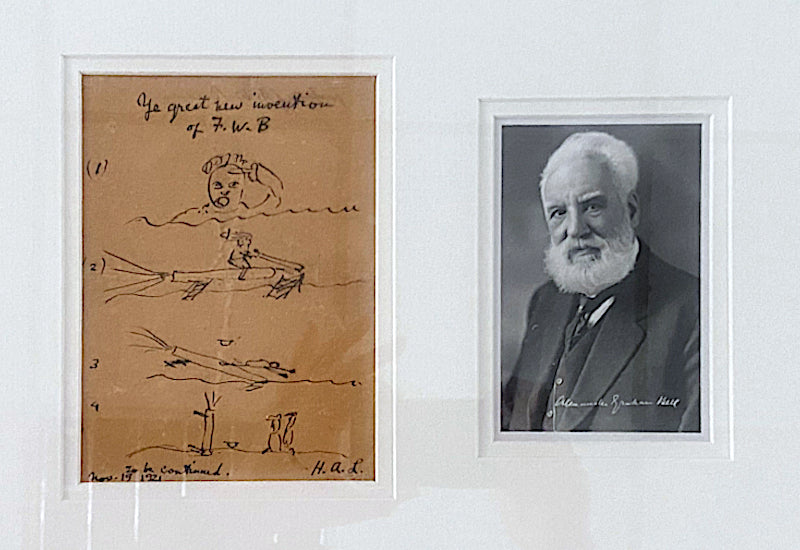 Ye great new invention
of F. W. B
(1)
(2)
3
4
To be continued.
Nov. 19 1921
H. A. L.
Alexander Graham Bell